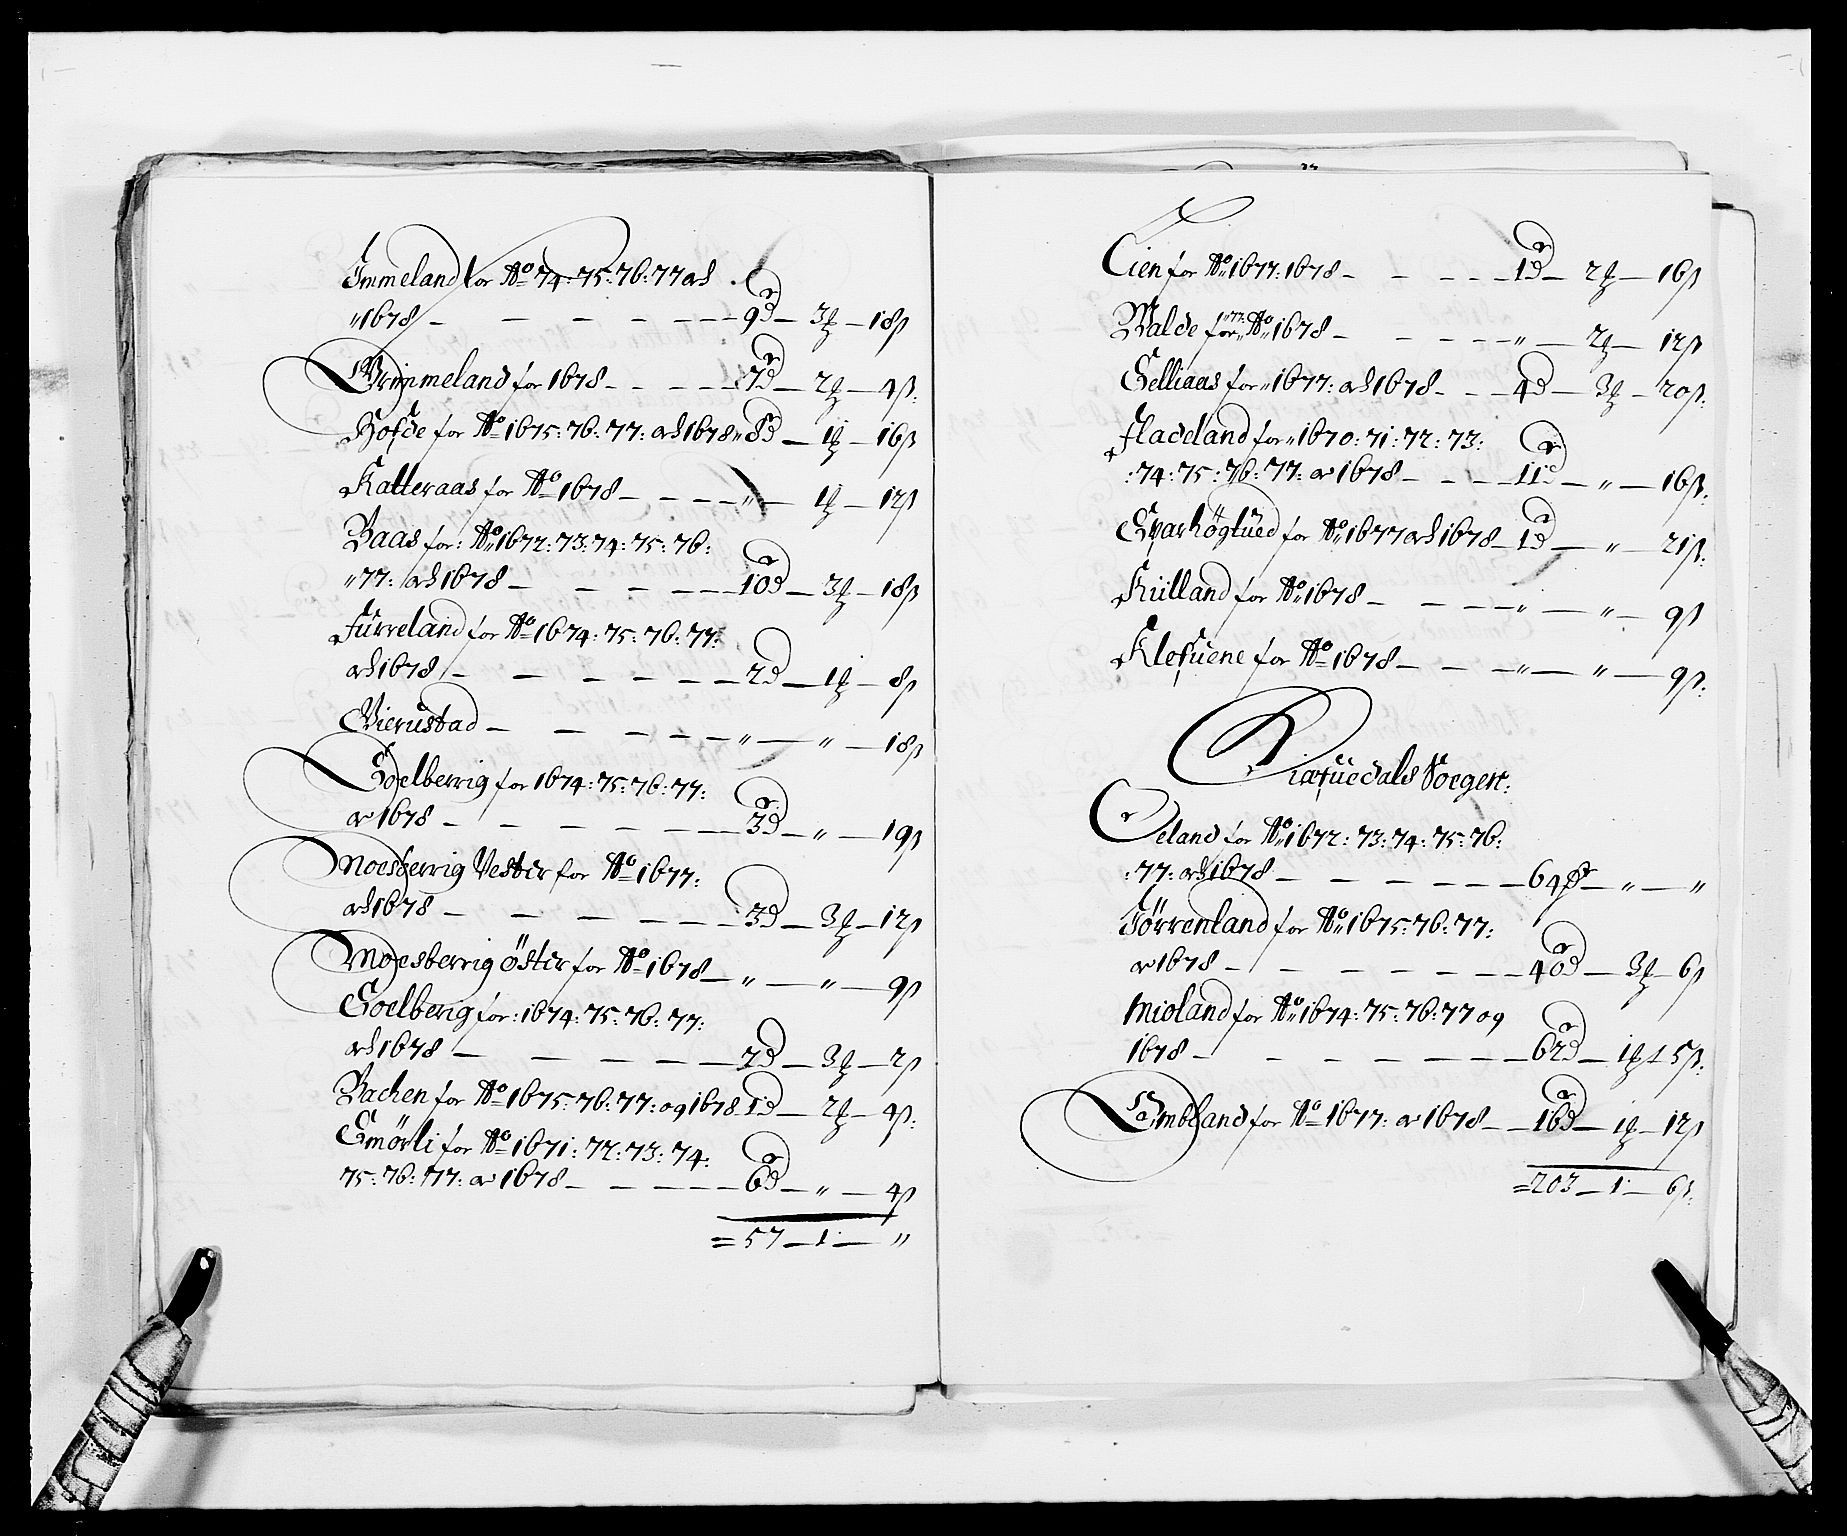 Immeland for Ao 74: 75: 76: 77 och
"1678 – – – – – 9 d – 3 ƒ – 18 β
Grimmeland for 1678 – – – 7 d – 2 ƒ – 4 β:
Hofde for Ao 1675: 76: 77: och 1678 " 8 d – 1 ƒ – 16 β
Katteraas for Ao 1678 – – – " – 1 ƒ – 12 β
Baas for: Ao 1672: 73: 74: 75: 76:
"77: och 1678 – – – – 10 d – 3 ƒ – 18 β
Furreland for Ao 1674: 75: 76: 77:
och 1678 – – – – – 2 d – 1 ƒ – 8 β
Vierustad – – – – " – " – 18 β
Edelberrig for 1674: 75: 76: 77:
or 1678 – – – – – 3 d – " – 19 β
Moesberrig Vester for Ao 1677:
och 1678 – – – – – 3 d – 3 ƒ – 12 β
Moesberrig öster for Ao 1678 – " – " – 9 β
Goelberig for: 1674: 75: 76: 77:
och 1678 – – – – – 2 d – 3 ƒ – 2 β
Bachen for Ao 1675: 76: 77: og 1678 1 d – 2 ƒ – 4 β:
Smörli for Ao 1671: 72: 73: 74:
75: 76: 77: or 1678 – – – – 6 d – " – 4 β
= 57 – 1 – "
Lien for Ao 1677: 1678 – – – 1 d – 2 ƒ – 16 β
Walde for "77: Ao 1678 – – – " – 2 ƒ – 12 β
Selliaas for "1677: och 1678 – – 4 d – 3 ƒ – 20 β:
Fladeland for "1670: 71: 72: 73:
:74: 75: 76: 77: or 1678 – – – 11 d – " – 16 β:
Sparhögtued for Ao 1677 och 1678 – 1 d – " – 21 β:
Kulland for Ao 1678 – – – " – " – 9 β
Klefuene for Ao 1678 – – – " – " – 9 β:
Qirfuedals Sogen:
Oeland for Ao 1672: 73: 74: 75: 76:
:77: och 1678 – – – – – 64 – " – "
Törrenland for Ao 1675: 76: 77:
or 1678 – – – – – 40 d – 3 ƒ – 6 β
Mioland for Ao 1674: 75: 76: 77 og
1678 – – – – – 62 d – 1 ƒ 15 β:
Lambland for Ao 1677: or 1678 – 16 d – 1 ƒ – 12 β
= 203 – 1 – 6 β: